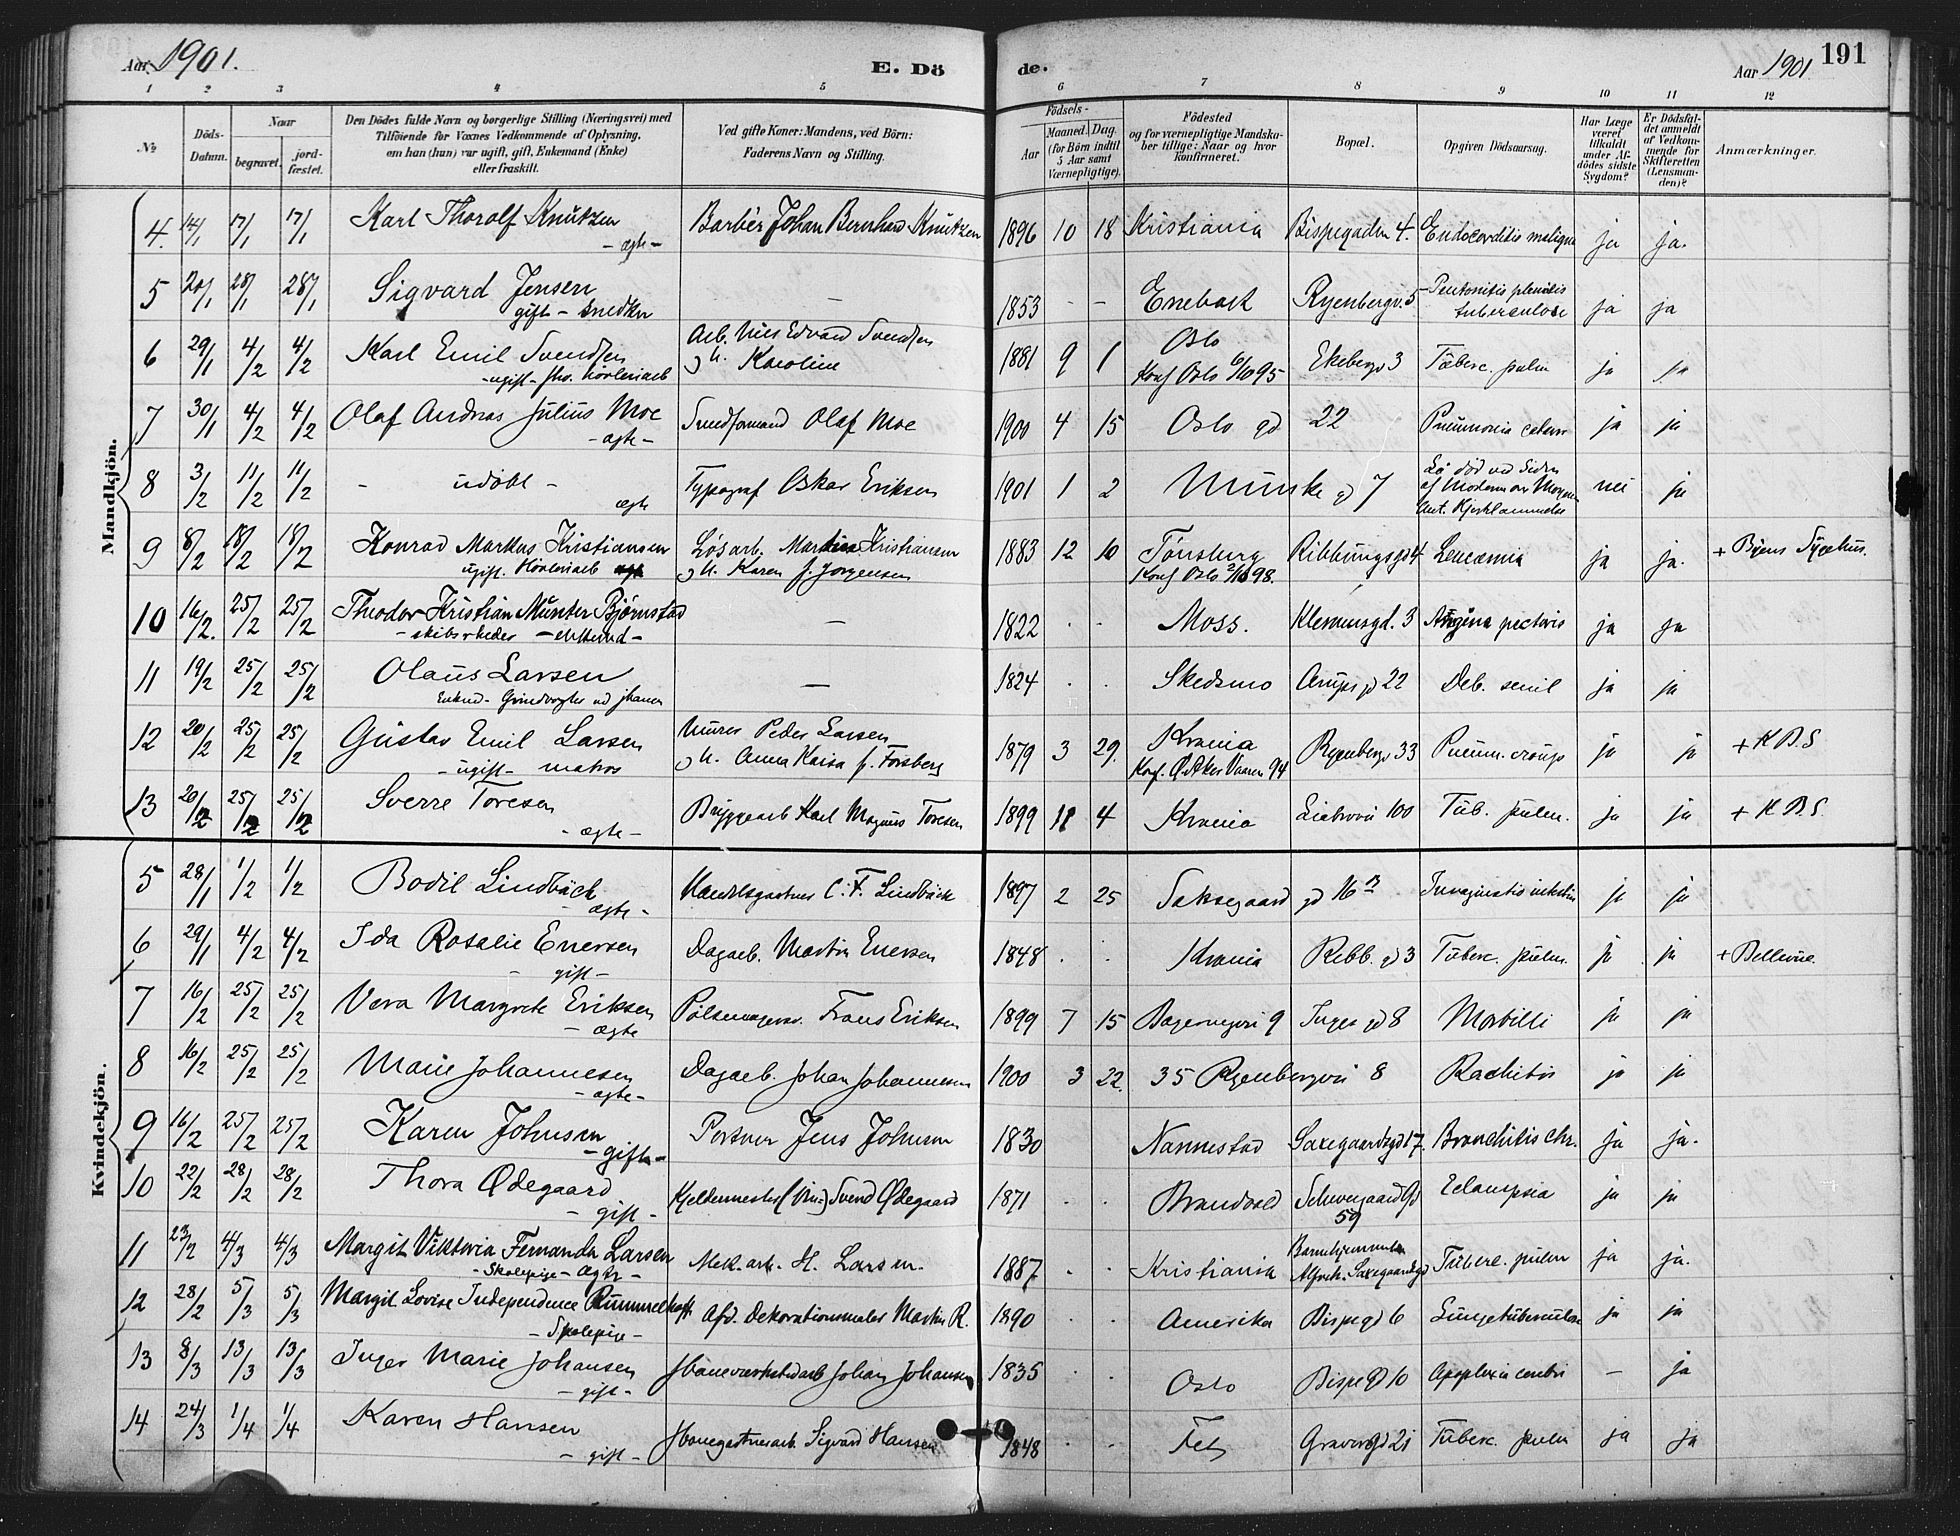 Aar 1901. E. Dö de. Aar 1901 191
1 2 3 4 5 6 7 8 9 10 11 12
No
Döds-Datum.
Naar
begravet.
jord-fæstet.
Den Dödes fulde Navn og borgerlige Stilling (Næringsvei) med
Tilföiende for Voxnes Vedkommende af Oplysning,
om han (hun) var ugift, gift, Enkemand (Enke)
eller fraskilt.
Ved gifte Koner: Mandens, ved Börn:
Faderens Navn og Stilling.
Födsels-
Aar
Maaned. Dag.
(for Börn indtil
5 Aar samt
Værnepligtige).
Födested
og for værnepligtige Mandska-
ber tillige: Naar og hvor
konfirmeret.
Bopæl.
Opgiven Dödsaarsag.
Har Læge
været
tilkaldt
under Af-
dödes sidste
Sygdom?
Er Dödsfal-
det anmeldt
af Vedkom-
mende for
Skifteretten
(Lensman-
den)?
Anmærkninger.
Mandkjön.
4. 14/1 17/1 17/1 Karl Thorolf Knutzen Barbér Johan Bernhard Knutzen 1896 10 18 Kristiania Bispegaden 4. Endocorditis maligna ja ja.
- ægte -
5 20/1 28/1 28/1 Sigvard Jensen — 1853 - - Enebak Ryenbergv. 5 ja ja
gift - snedker tuberculose
6 29/1 4/2 4/2 Karl Emil Svendsen Arb. Nils Edvard Svendsen 1881 9 1 Oslo Ekebergv 3 Tuberc. pulm ja ja
- ugift - Høvleriarb og h. Karoline Konf Oslo 6/10 95
7 30/1 4/2 4/2 Olaf Andreas Julius Moe Olaf Moe 1900 4 15 Oslo gd 22 Pneumonia catarr ja ja
- ægte -
8 3/2 11/2 11/2 - udøbt - Typograf Oskar Eriksen 1901 1 2 Munke gd 7 Lå død ved Siden nei ja
ægte af Moderen om Morgenen
9 8/2 18/2 18/2 Konrad Markus Kristiansen Løsarb. Martin Kristiansen 1883 12 10 Tønsberg Ribbungsgd 4 Leucæmia ja ja. + Byens Sygehus.
ugift. Høvleriarb og h. Karen f. Jørgensen Konf Oslo 2/10 98.
10 16/2. 25/2 25/2 Theodor Kristian Munter Bjørnstad — 1822 - - Moss. Klemensgd. 3 Angina pectoris ja ja
- skibsrheder - enkemd -
11 19/2 25/2 25/2 Olaus Larsen — 1824 . . Skedsmo Arups gd 22 Deb. senil ja ja
Enkmd - Grindvogter ved jbanen
12 20/2 25/2 25/2 Gustav Emil Larsen Murer Peder Larsen 1879 3 29. Krania Ryenbergv 33 Pneum. croup ja ja + K B. S
- ugift - matros og h. Anna Kaisa f. Forsberg Konf. Ø. Aker Vaaren 94
13 20/2 25/2 25/2 Sverre Toresen Bryggearb Karl Magnus Toresen 1899 11 4 Krania Liabrovei 100 Tub. pulm. ja ja + K B. S.
- ægte -
Kvindekjön.
5 28/1 1/2 1/2 Bodil Lindbäck Handelsgartner C. F. Lindbäck 1897 2 25 Saksegaard gd 16 B Invaginatio intestin ja ja
- ægte -
6 29/1 4/2 4/2 Ida Rosalie Enersen Dagarb. Martin Enersen 1848 . . Krania Ribb. gd 3 Tuberc. pulm. ja ja + Bellevue.
- gift -
7 16/2 25/2 25/2 Vera Margrete Eriksen Pølsemagersv. Frans Eriksen 1899 7 15 9 Inges gd 8 Morbilli ja ja
- ægte
8 16/2 25/2 25/2 Marie Johannesen Dagarb. Johan Johannesen 1900 3 22. 35 Ryenbergvei 8 Rachitis ja ja
- ægte -
9 16/2 25/2 25/2 Karen Johnsen Portner Jens Johnsen 1830 Nannestad Saxegaardsgd 17. Bronchitis chr. ja ja.
- gift -
10 22/2 28/2 28/2 Thora Ødegaard Kjeldermester Svend Ødegaard 1871 . . Brandvold Schweigaard Gd Eclampsia ja ja
- gift - 59
11 23/2 4/3 4/3 Margit Viktoria Fernanda Larsen Mek. arb. H. Larsen. 1887 . . Kristiania Barnehjemmet Tuberc. pulm ja ja.
- Skolepige - ægte - Saxegaardsgd
12 28/2 5/3 5/3 Margit Lovise Independence Rummelhoff Afd. Dekorationsmaler Martin R. 1890 . . Amerika Bispegd 6 Lungetuberculose ja ja
- Skolepige -
13 8/3 13/3 13/3 Inger Marie Johansen Jbaneværkstedarb Johan Johansen 1835 . . Oslo Bispe gd 10 Apoplexia cerebri — ja
- gift -
14 24/3 1/4 1/4 Karen Hansen Jbanegartnerarb. Sigvard Hansen 1848 . . Fet Gravergd 21 Tuberc. pulm ja ja
- gift -